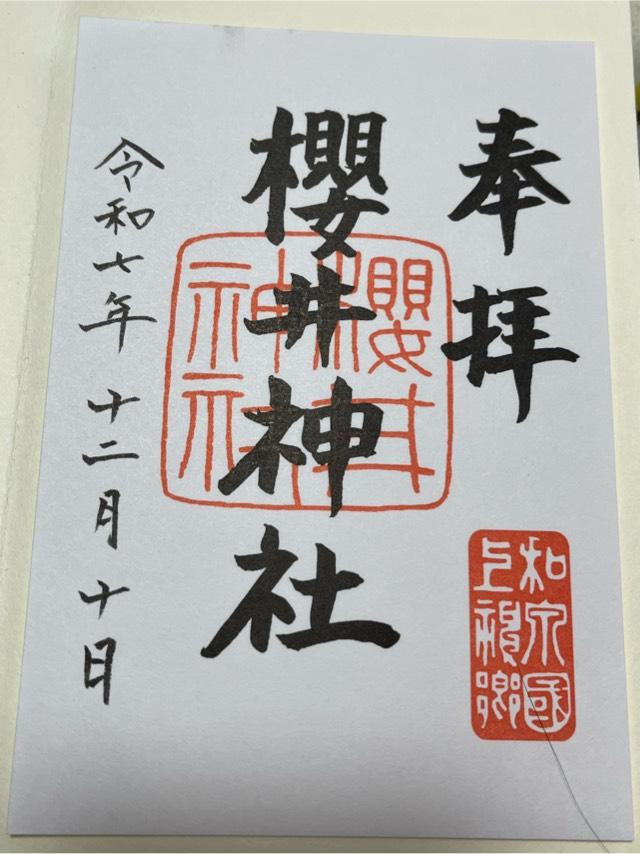 奉拝
和泉國
上神郷
櫻井神社
櫻井
神社
令和七年 十二月 十日